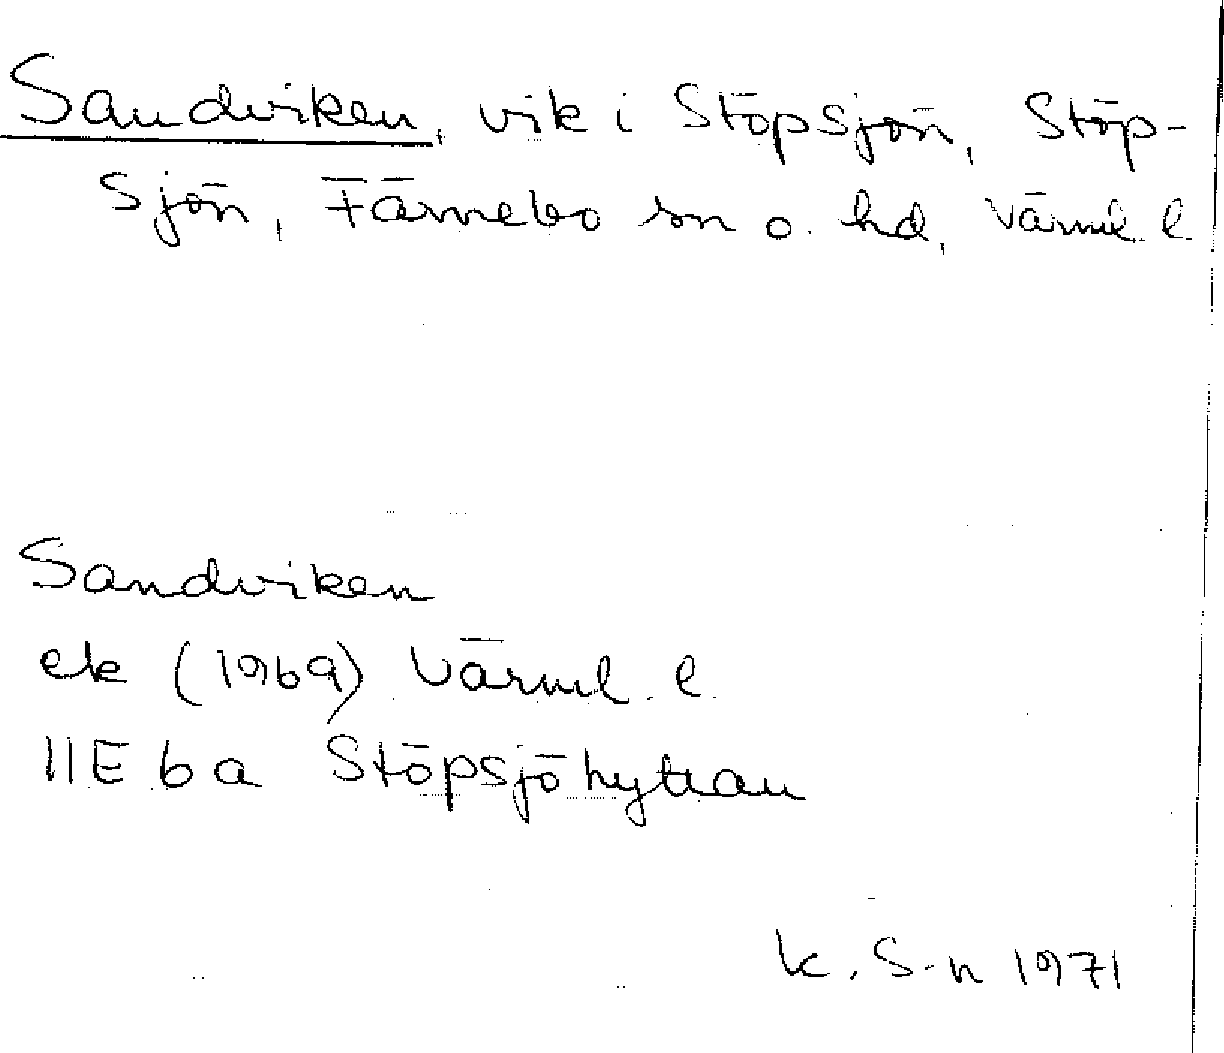 Sandviken, vik i Stöpsjön, Stöp-
sjön, Färnebo sn o. hd, Värml. l.
Sandviken
ek (1969) Värml. l.
11E 6a Stöpsjöhyttan
K. S-n 1971